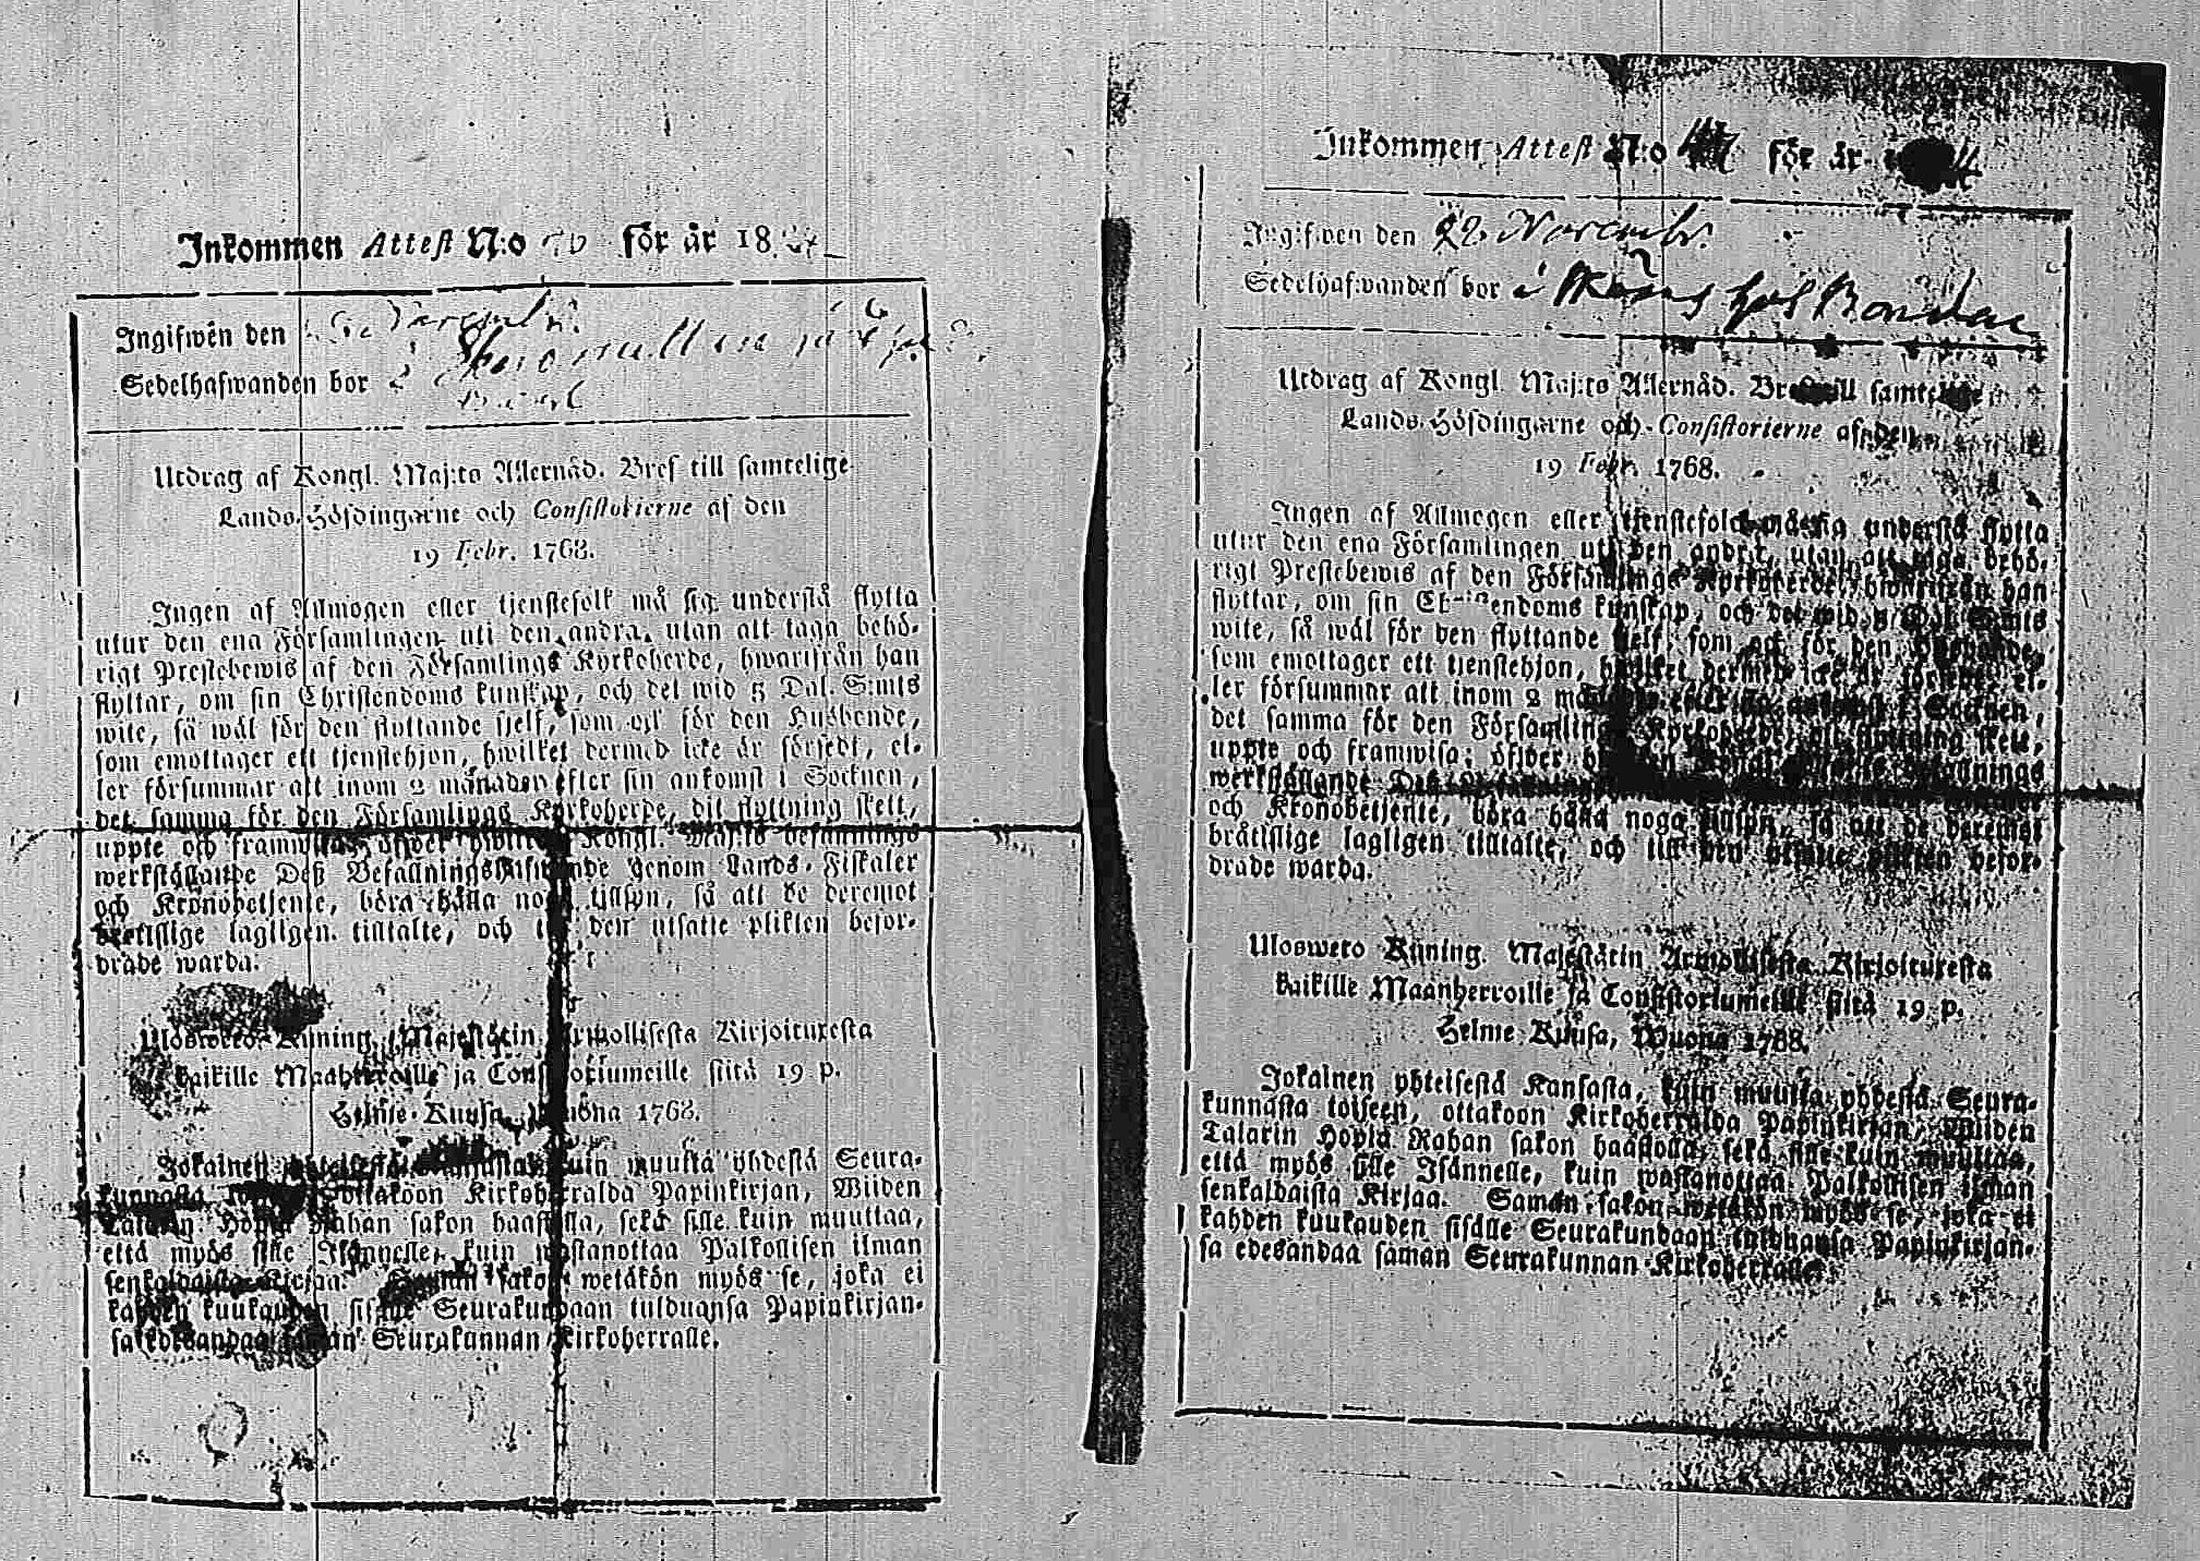 Inkommen Attest N:o för år 18
Ingifwen den
Sedelhafwanden bor i
Utdrag af Kongl. Maj:ts Allernåd. Bref till samtelige
Lands-Höfdingarne och Consistorierne af den
19 Febr. 1768.
Ingen af Allmogen eller tjenstefolk må sig understå flytta
utur den ena Församlingen uti den andra, utan att taga behö-
rigt Prestebewis af den Församlings Kyrkoherde, hwarifrån han
flyttar, om sin Christendoms kunskap, och det wid 5 Dal. S:mts
wite, så wäl för den flyttande sjelf, som ock för den Husbonde,
som emottager ett tjenstehjon, hwilket dermed icke är försedt, el-
ler försummar att inom 2 månader efter sin ankomst i Socknen,
det samma för den Församlings Kyrkoherde, dit flyttning skett,
uppte och framwisa; öfwer hwilket Kongl. Maj:ts befallnings
werkställande Deß Befallningshafwande genom Lands-Fiskaler
och Kronobetjente, böra hålla noga tillsyn, så att de deremot
brottslige lagligen tilltalte, och till den utsatte plikten befor-
drade warda.
Ulosweto Kuning. Majestätin Armollisesta Kirjoituxesta
kaikille Maanherroille ja Consistoriumeille siitä 19 p.
Helme-Kuusa, Wuona 1768.
Jokainen yhteisestä Kansasta, kuin muutta yhdestä Seura-
kunnasta toiseen, ottakoon Kirkoherralda Papinkirjan, Wiiden
Talarin Hopia Rahan sakon haastolla, sekä sille kuin muuttaa,
että myös sille Isännelle, kuin wastanottaa Palkollisen ilman
senkaldaista Kirjaa. Saman sakon wetäkön myös se, joka ei
kahden kuukauden sisälle Seurakundaan tulduansa Papinkirjan-
sa edesandaa saman Seurakunnan Kirkoherralle.
Inkommen Attest N:o för år
Ingifwen den 22 Novembr.
Sedelhafwanden bor i
Utdrag af Kongl. Maj:ts Allernåd. Bref till samtelige
Lands-Höfdingarne och Consistorierne af den
19 Febr. 1768.
Ingen af Allmogen eller tjenstefolk må sig understå flytta
utur den ena Församlingen uti den andra, utan att taga behö-
rigt Prestebewis af den Församlings Kyrkoherde, hwarifrån han
flyttar, om sin Christendoms kunskap, och det wid 5 Dal. S:mts
wite, så wäl för den flyttande sjelf, som ock för den Husbonde,
som emottager ett tjenstehjon, hwilket dermed icke är försedt, el-
ler försummar att inom 2 månader efter sin ankomst i Socknen,
det samma för den Församlings Kyrkoherde, dit flyttning skett,
uppte och framwisa; öfwer befallnings
werkställande Deß
och Kronobetjente, böra hålla noga tillsyn, så att de deremot
bråttslige lagligen tilltalte, och till den utsatte plikten befor-
drade warda.
Ulosweto Kuning. Majestätin Armollisesta Kirjoituxesta
kaikille Maanherroille ja Consistoriumeille siitä 19 p.
Helme Kuusa, Wuona 1768.
Jokainen yhteisestä Kansasta, kuin muutta yhdestä Seura-
kunnasta toiseen, ottakoon Kirkoherralda Papinkirjan, Wiiden
Talarin Hopia Rahan sakon haastolla, sekä sille kuin muuttaa,
että myös sille Isännelle, kuin wastanottaa Palkollisen ilman
senkaldaista Kirjaa. Saman sakon wetäkön myös se, joka ei
kahden kuukauden sisälle Seurakundaan tulduansa Papinkirjan-
sa edesandaa saman Seurakunnan Kirkoherralle.